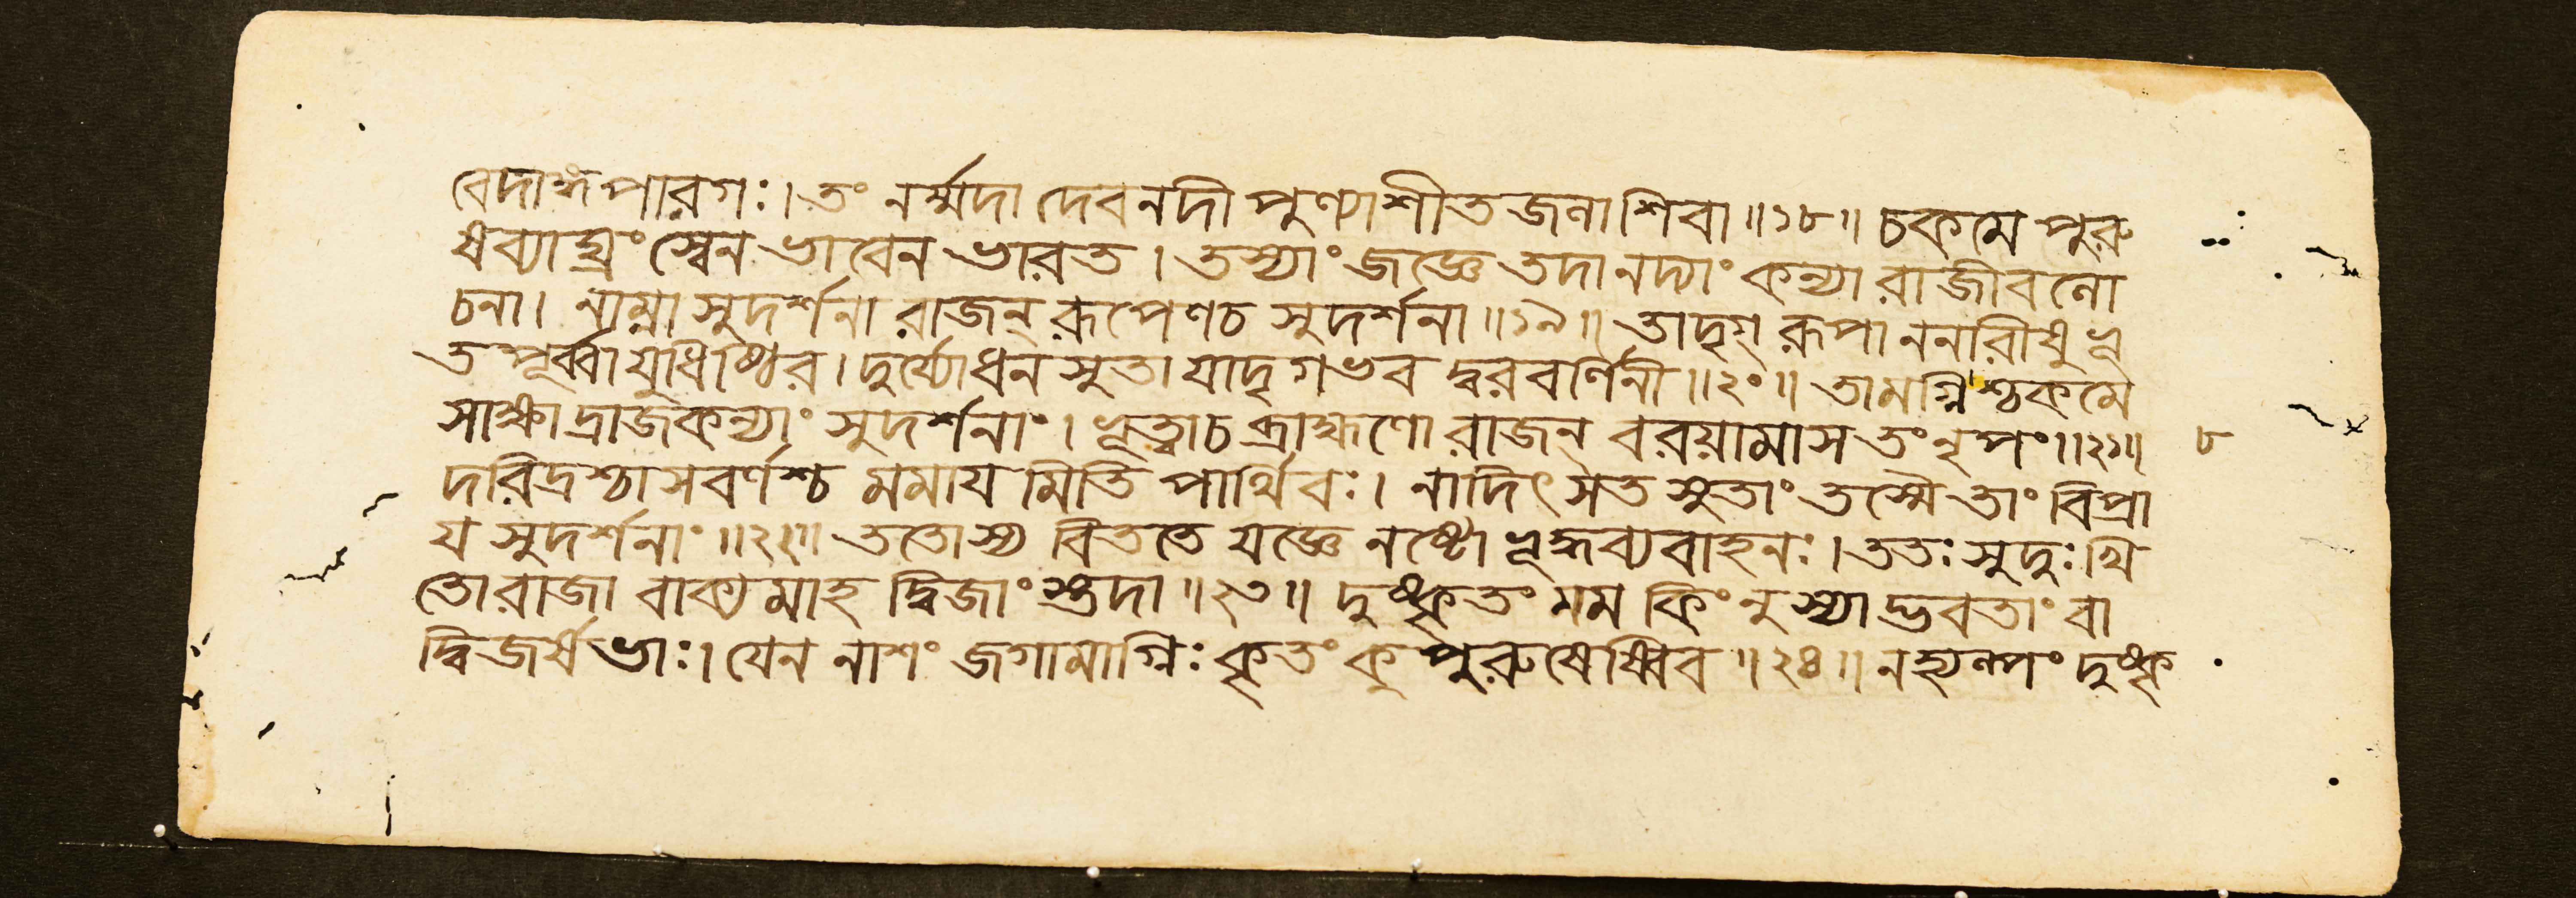 বেদাঙ্গপারগঃ। তং নর্ম্মদা দেবনদী পুণ্যাশীতজলাশিবা॥১৮॥ চকমে পুরু
ষব্যাঘ্রং স্বেন ভাবেন ভারত। তস্যাং জজ্ঞে তদানদ্যাং কন্যা রাজীবলো
চনা। নাম্না সুদর্শনা রাজন্ রূপেণচ সুদর্শনা॥১৯॥ তাদৃগ্ রূপা ননারীষু ভূ
তপূর্ব্বা যুধিষ্ঠির। দুর্য্যোধন সুতা যাদৃগভব দ্বরবর্ণিনী॥২০॥ তামগ্নিশ্চকমে
সাক্ষাদ্রাজকন্যাং সুদর্শনাং। ভূত্বাচ ব্রাহ্মণো রাজন্ বরয়ামাস তংনৃপং॥২১॥ ৮
দরিদ্রশ্চাসবর্ণশ্চ মমায মিতি পার্থিবঃ। নাদিৎসত সুতাং তস্মৈ তাং বিপ্রা
য সুদর্শনাং॥২২॥ ততোস্য বিততে যজ্ঞে নষ্টোভূদ্ধব্যবাহনঃ। ততঃ সুদুঃখি
তোরাজা বাক্যমাহ দ্বিজাংস্তদা॥২৩॥ দুষ্কৃতং মম কিংনুস্যাদ্ভবতাং বা
দ্বিজর্ষভাঃ। যেন নাশং জগামাগ্নিঃ কৃতং কুপুরুষেষ্বিব॥২৪॥ নহ্যল্পং দুষ্কৃ